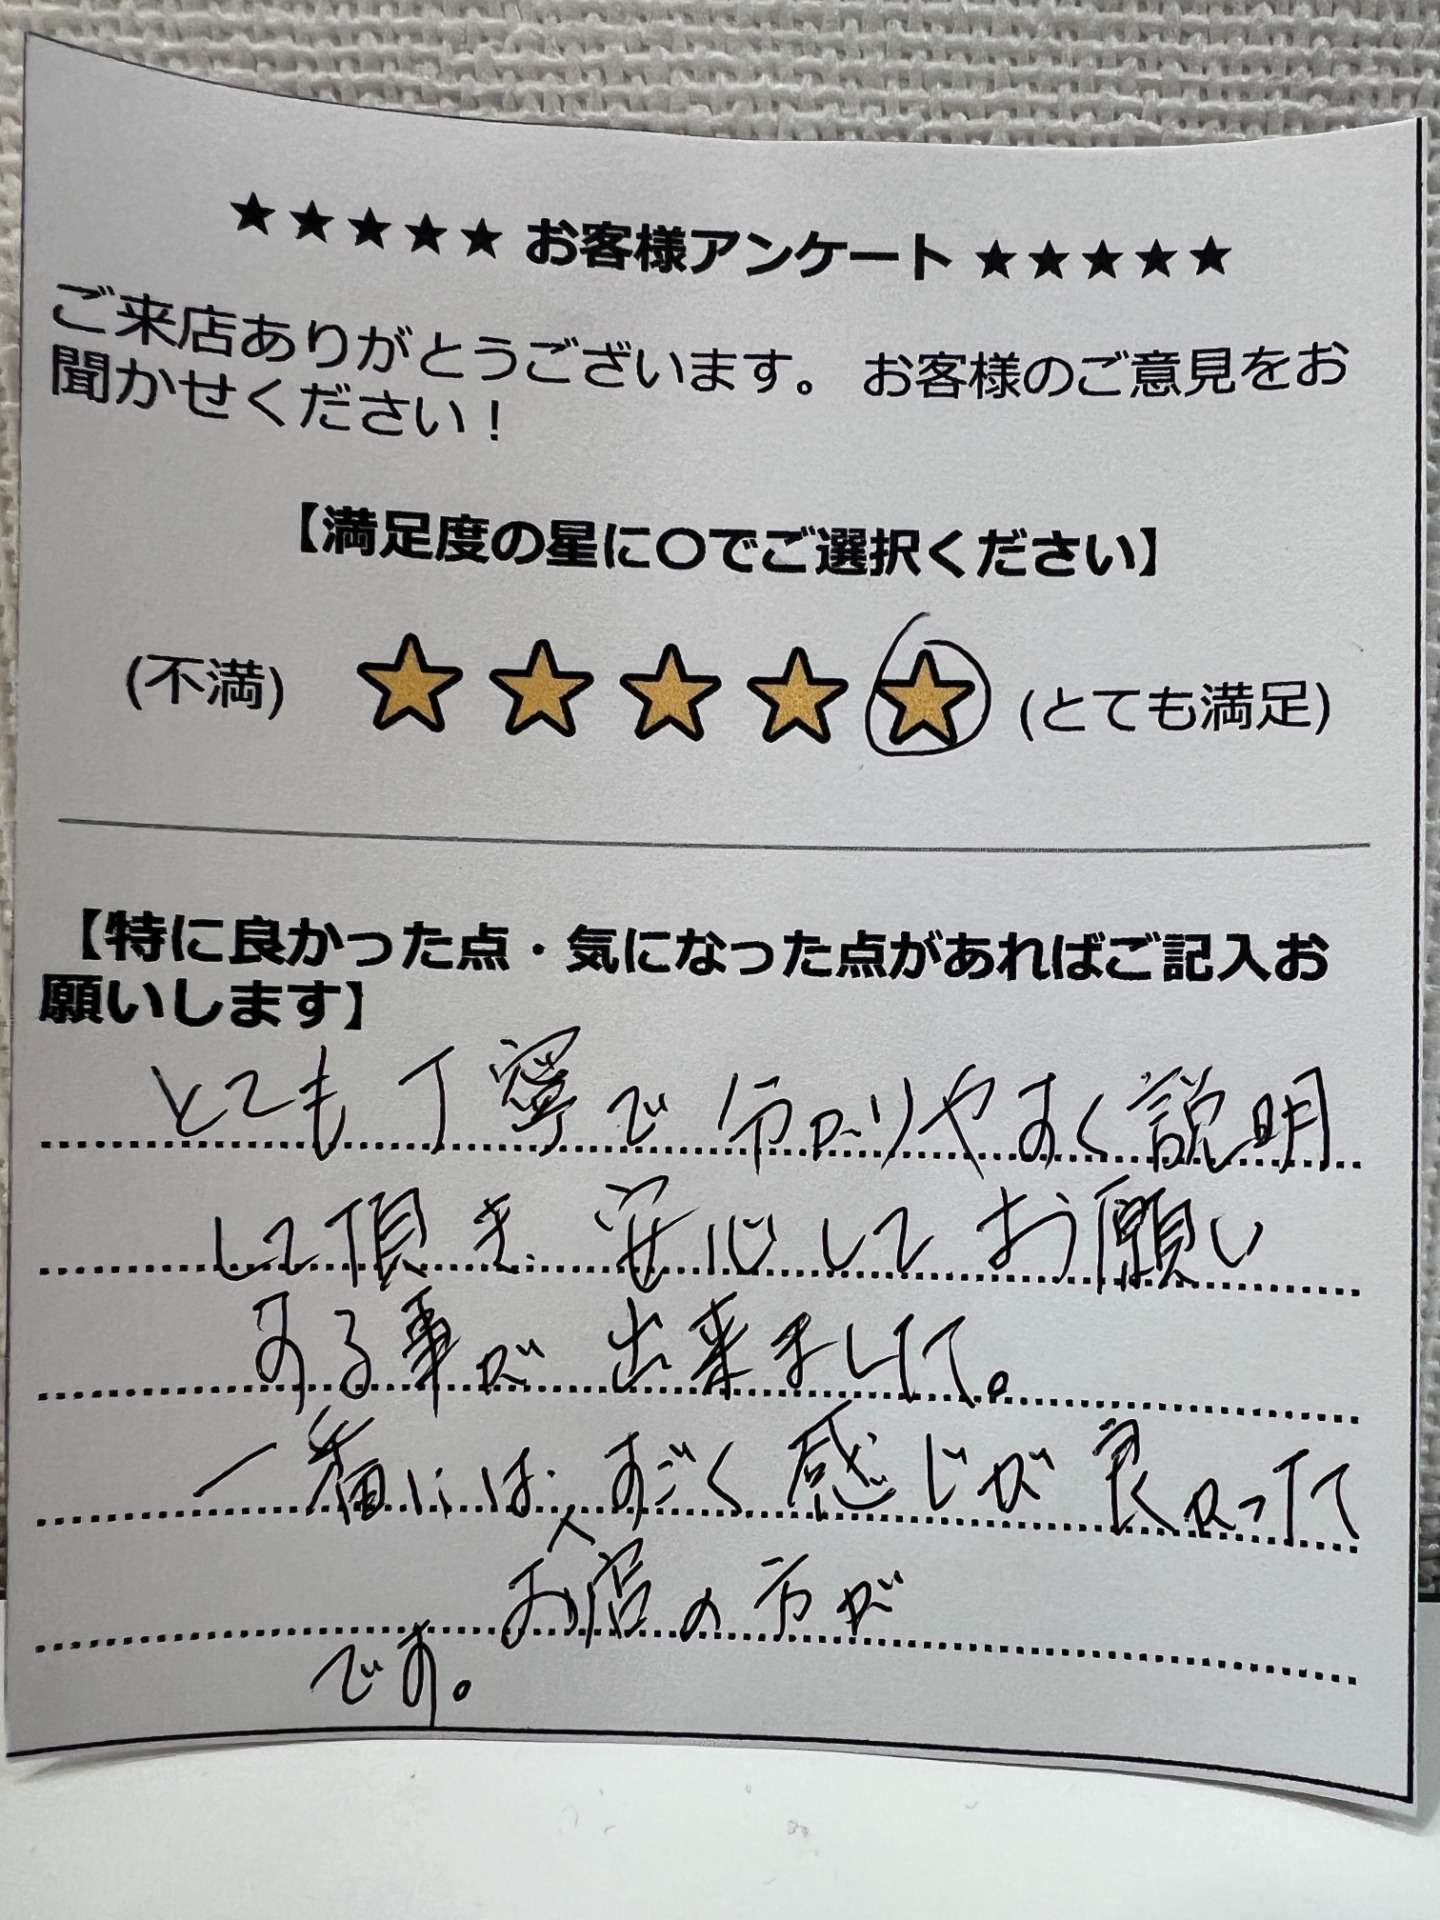 ★★★★★ お客様アンケート ★★★★★
ご来店ありがとうございます。 お客様のご意見をお
聞かせください！
【満足度の星に〇でご選択ください】
(不満) ★★★★★ (とても満足)
【特に良かった点・気になった点があればご記入お
願いします】
とても丁寧で分かりやすく説明
して頂き、安心してお願い
する事が出来ました。
一番にはすごく感じが良かった
お店の方が
です。